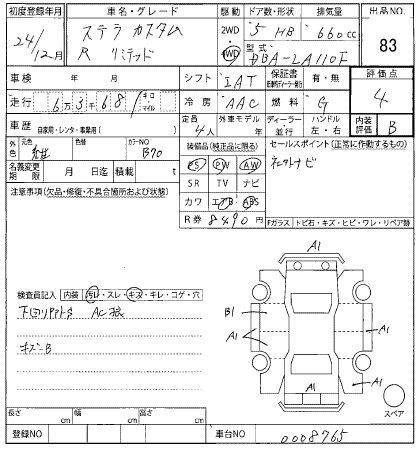 初度登録年月 車名・グレード 駆動 ドア数・形状 排気量 出品NO.
24/12月 ステラ カスタム R リミテッド 2WD・4WD 5 HB 660cc 83
型式 DBA-LA110F
車検 年 月 シフト IAT 保証書 有・無 評価点 4
走行 6万3千681 キロ・マイル 冷房 AAC 燃料 G
車歴 自家用・レンタ・事業用( ) 定員 4人 外車モデル 年 ディーラー・並行 ハンドル 左・右 内装評価 B
外色 元色 色替 カラーNO B70
装備品(純正品に限る) セールスポイント(正常に作動するもの)
名義変更期限 月 日迄 積載 t PS PW AW
注意事項(欠品・修復・不具合箇所および状態) SR TV ナビ
カワ エアB ABS
R券 8490円
Fガラス トビ石・キズ・ヒビ・ワレ・リペア跡
A1
検査員記入 内装 汚レ・スレ・キズ・キレ・コゲ・穴
B1
A1
A1
キズーB
A1
A1
スペア
長さ cm 幅 cm 高さ cm
登録NO 車台NO 0008765